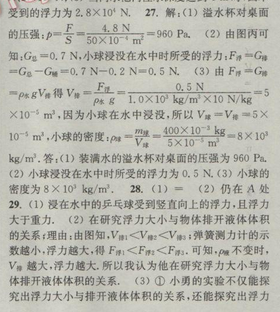 受到的浮力为 2.8×10⁴ N. 27. 解:(1) 溢水杯对桌面
的压强:p=F/S=4.8 N/50×10⁻⁴ m²=960 Pa. (2) 由图丙可
知:G总=0.7 N,小球浸没在水中时所受的浮力:F浮=G排
=G总-G桶=0.7 N-0.2 N=0.5 N. (3) 由 F浮=G排
=ρ水gV排得 V排=F浮/ρ水 g=0.5 N/1.0×10³ kg/m³×10 N/kg=5
×10⁻⁵ m³,因为小球在水中浸没,所以 V球=V排=5×
10⁻⁵ m³,小球的密度:ρ球=m球/V球=400×10⁻³ kg/5×10⁻⁵ m³=8×10³
kg/m³. 答:(1) 装满水的溢水杯对桌面的压强为 960 Pa.
(2) 小球浸没在水中时所受的浮力为 0.5 N. (3) 小球的
密度为 8×10³ kg/m³. 28. (1) = (2) 仍在 A 处
29. (1) 浸在水中的乒乓球受到竖直向上的浮力,且浮力
大于重力. (2) 在研究浮力大小与物体排开液体体积
的关系;理由:由图知,V排1<V排2<V排3;弹簧测力计的示
数越小,浮力越大,得 F浮1<F浮2<F浮3. 可知,ρ液不变时,
V排 越大,浮力越大. 所以我认为他在研究浮力大小与物
体排开液体体积的关系. (3) ① 小勇的实验不仅能探
究出浮力大小与排开液体体积的关系,还能探究出浮力